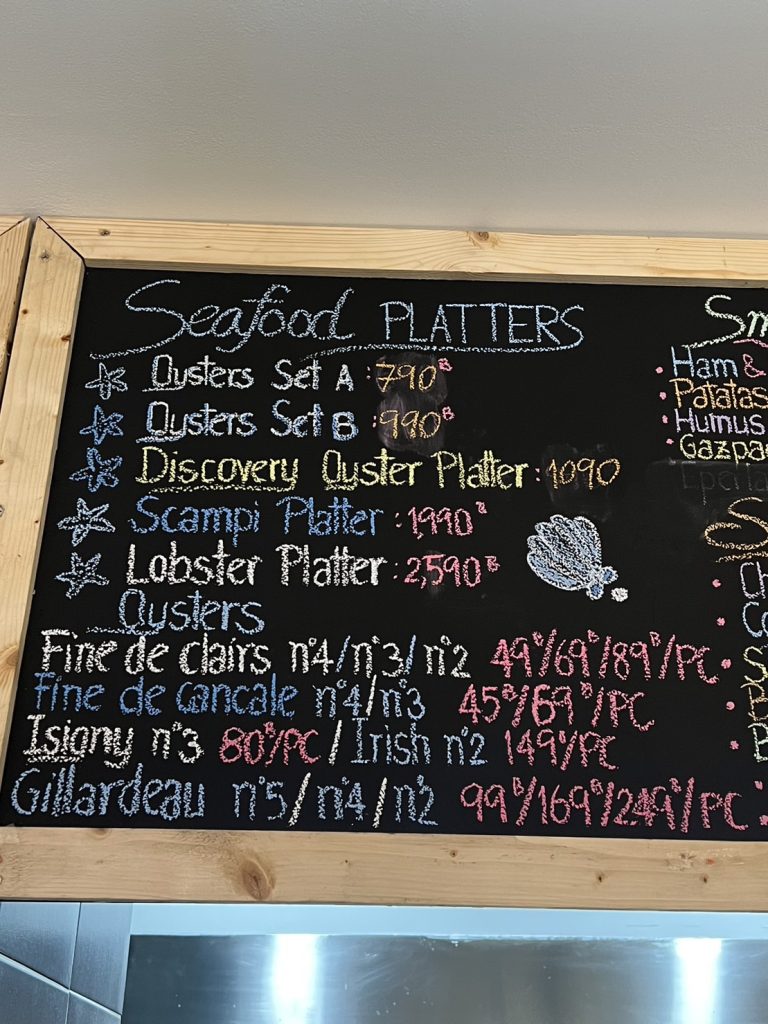 Seafood PLATTERS
Oysters Set A : 790฿
Oysters Set B : 990฿
Discovery Oyster Platter : 1090
Scampi Platter : 1,990฿
Lobster Platter : 2,590฿
Oysters
Fine de clairs n°4/n°3/n°2 49฿/69฿/89฿/PC
Fine de cancale n°4/n°3 45฿/69฿/PC
Isigny n°3 80฿/PC / Irish n°2 149฿/PC
Gillardeau n°5/n°4/n°2 99฿/169฿/249฿/PC
Sm
Ham &
Patatas
Humus
Gazpa